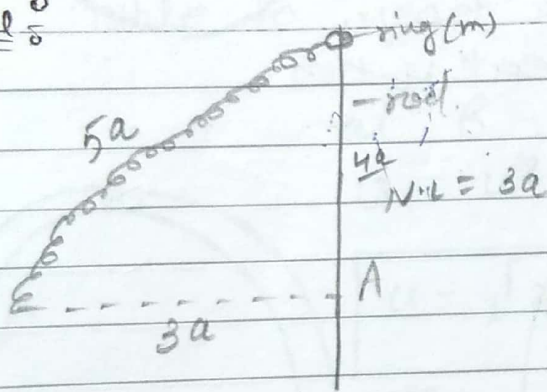 ring (m)
- rod.
5a
4a
N.L = 3a
A
3a